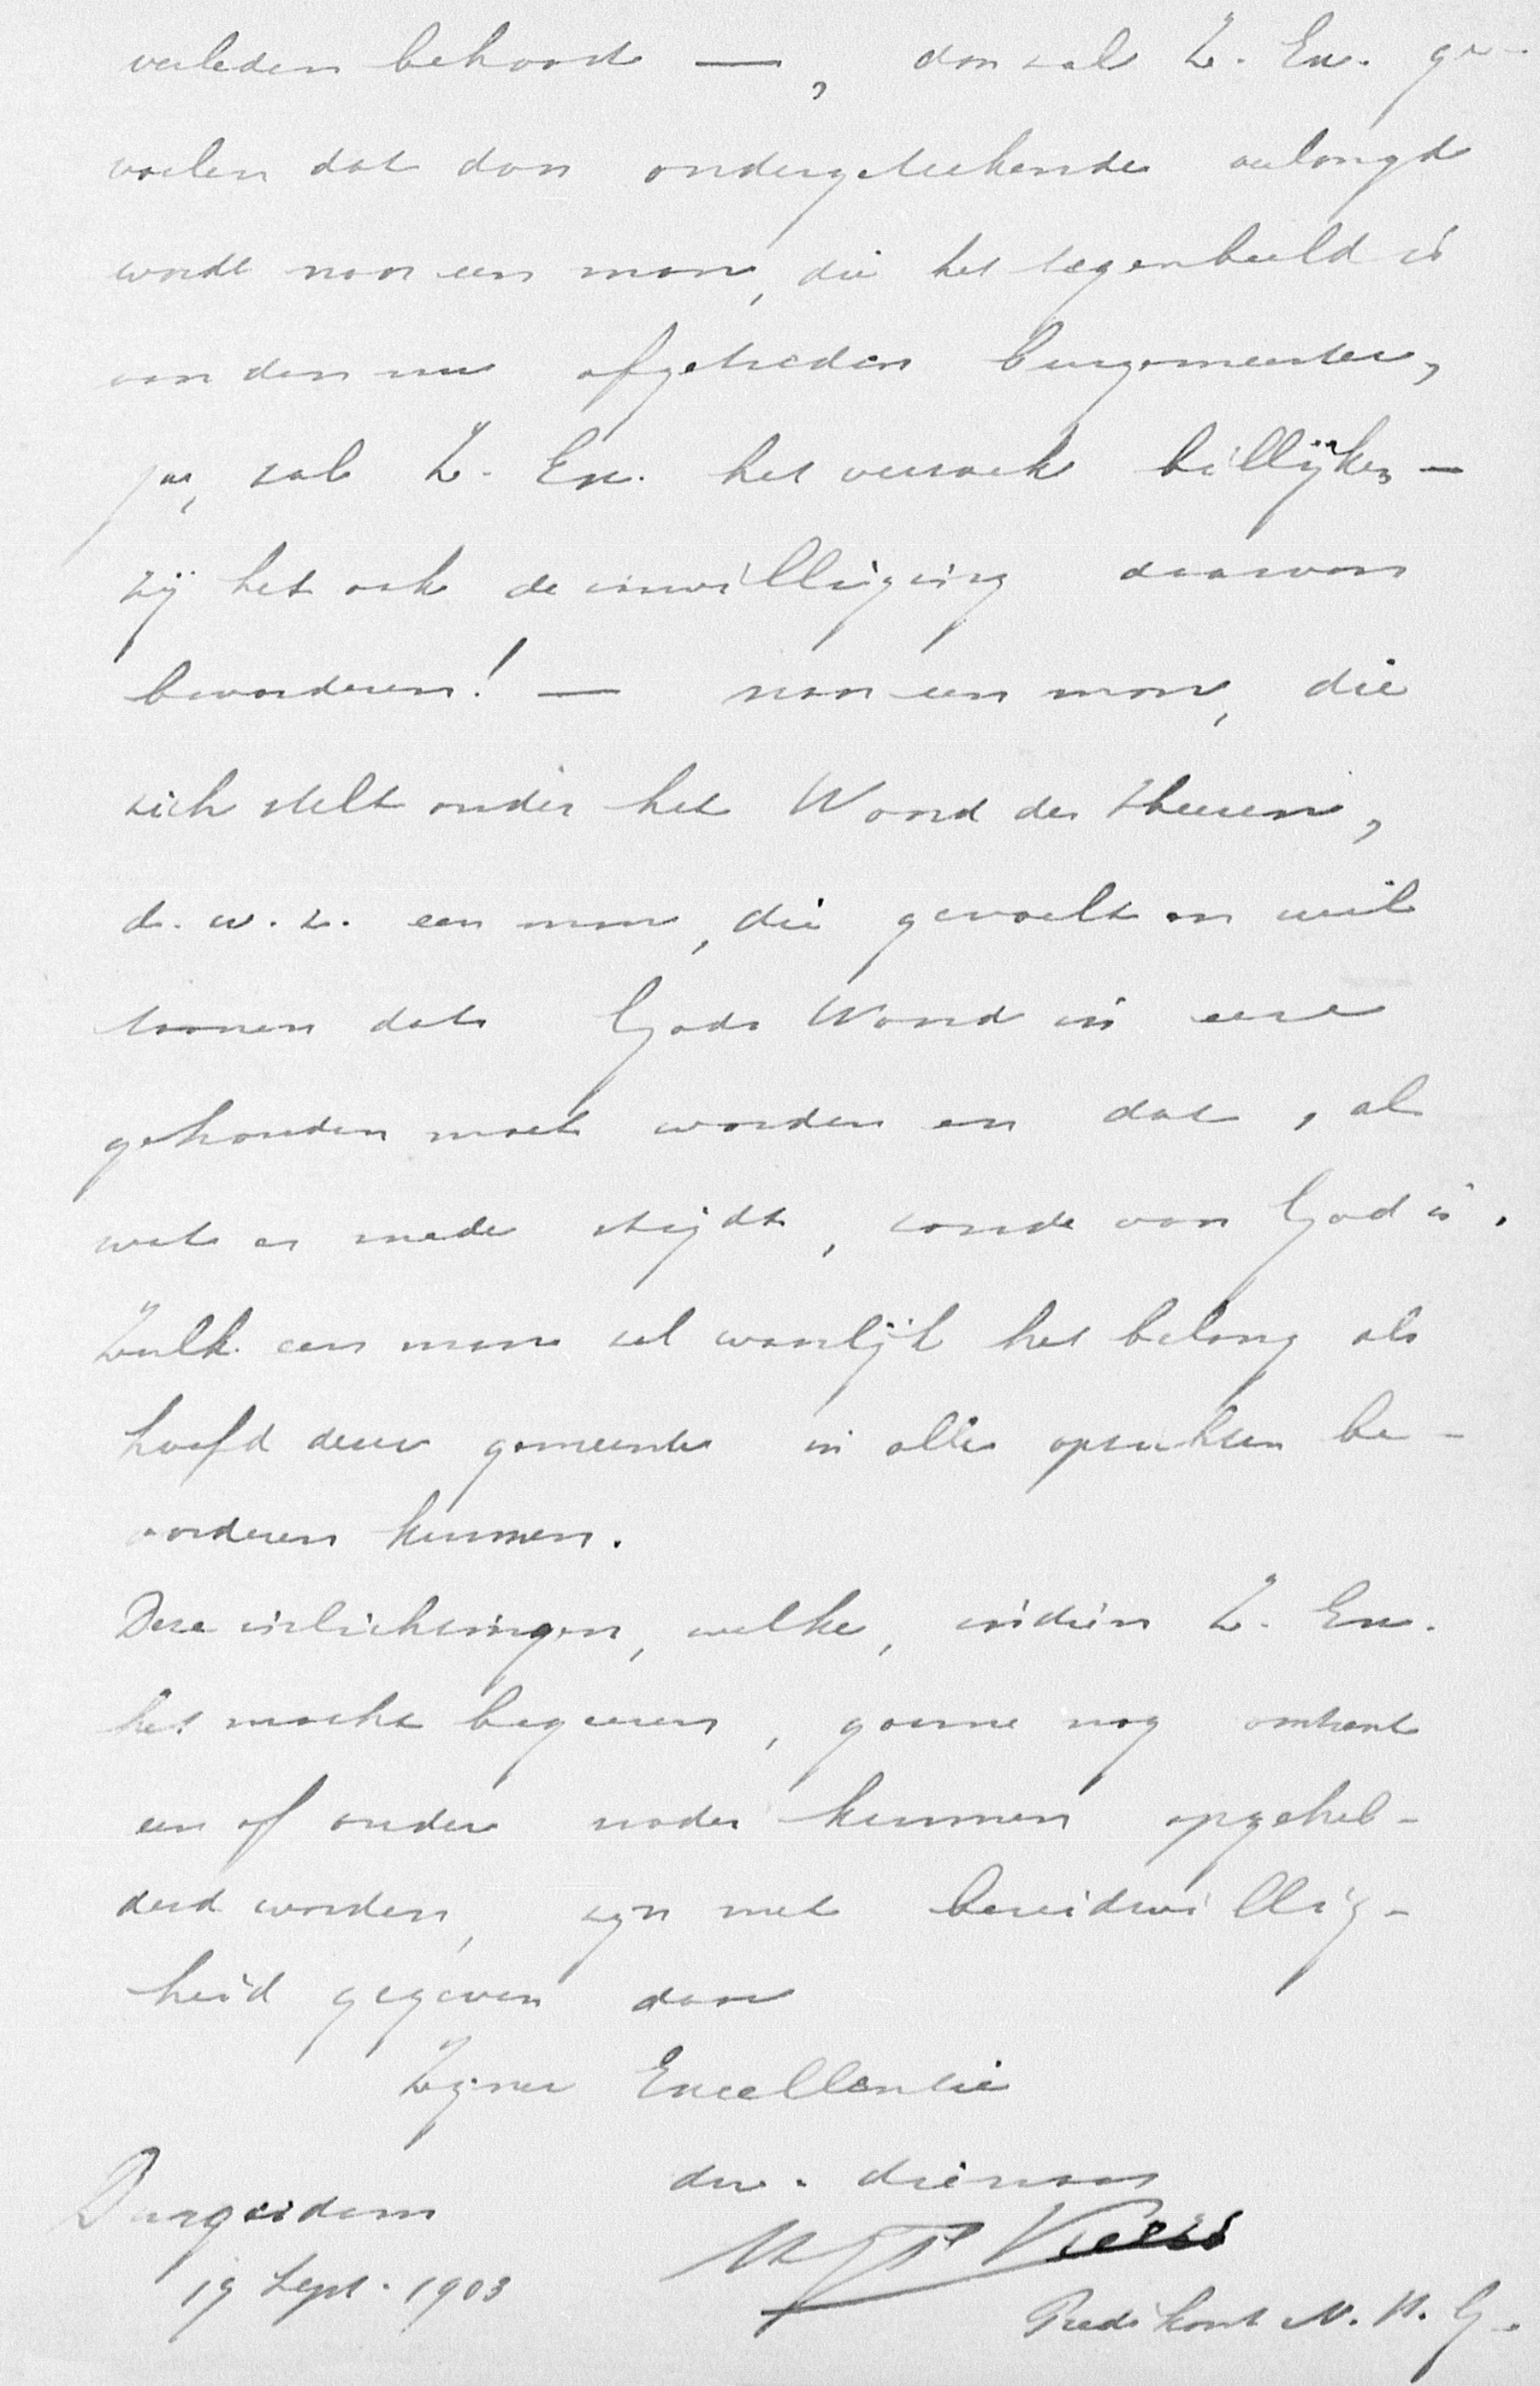 verleden behoort —, dan zal Z. Exc. ge-
voelen dat dan ondergeteekende verlangd
wordt naar een man, die het tegenbeeld is
van den nu afgetreden burgemeester,
ja, zal Z. Exc. het verzoek billijken —
zij het ook de inwilliging daarvan
bevorderen! — naar een man, die
zich stelt onder het Woord des Heeren,
d. w. z. een man, die gevoelt en wil
toonen dat Gods Woord in eere
gehouden moet worden en dat, al
wat er mede strijdt, zonde voor God is.
Zulk een man zal waarlijk het belang als
hoofd dezer gemeente in alle opzichten be-
vorderen kunnen.
Deze inlichtingen, welke, indien Z. Exc.
het mocht begeeren, gaarne nog omtrent
een of ander nader kunnen opgehel-
derd worden, zijn met bereidwillig-
heid gegeven door
Zijner Excellentie
dw. dienaar
Durgerdam
19 Sept. 1903
Predikant N. H. G.